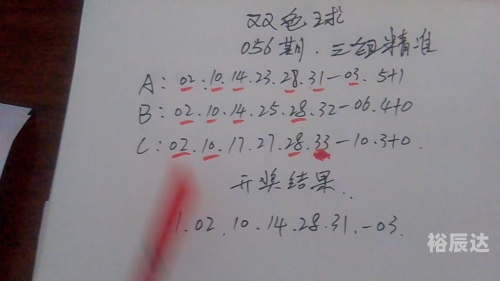 双色球
056期.三组精准
A:02.10.14.23.28.31-03.5+1
B:02.10.14.25.28.32-06.4+0
C:02.10.17.27.28.33-10.3+0
开奖结果..
1.02.10.14.28.31.-03.
裕辰达